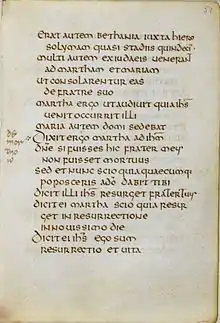 erat autem bethania iuxta hiero
solymam quasi stadiis quindecim
multi autem ex iudaeis venerant
ad martham et mariam
ut consolarentur eas
de fratre suo
martha ergo ut audiuit quia ihs
uenit occurrit illi
maria autem domi sedebat
dixit ergo martha ad ihm
dne si fuisses hic frater meus
non fuisset mortuus
sed et nunc scio quia quaecumque
poposceris ado dabit tibi
dicit illi ihs resurget frater tuus
dicit ei martha scio quia resur
get in resurrectione
in nouissimo die
dicit ei ihs ego sum
resurrectio et uita